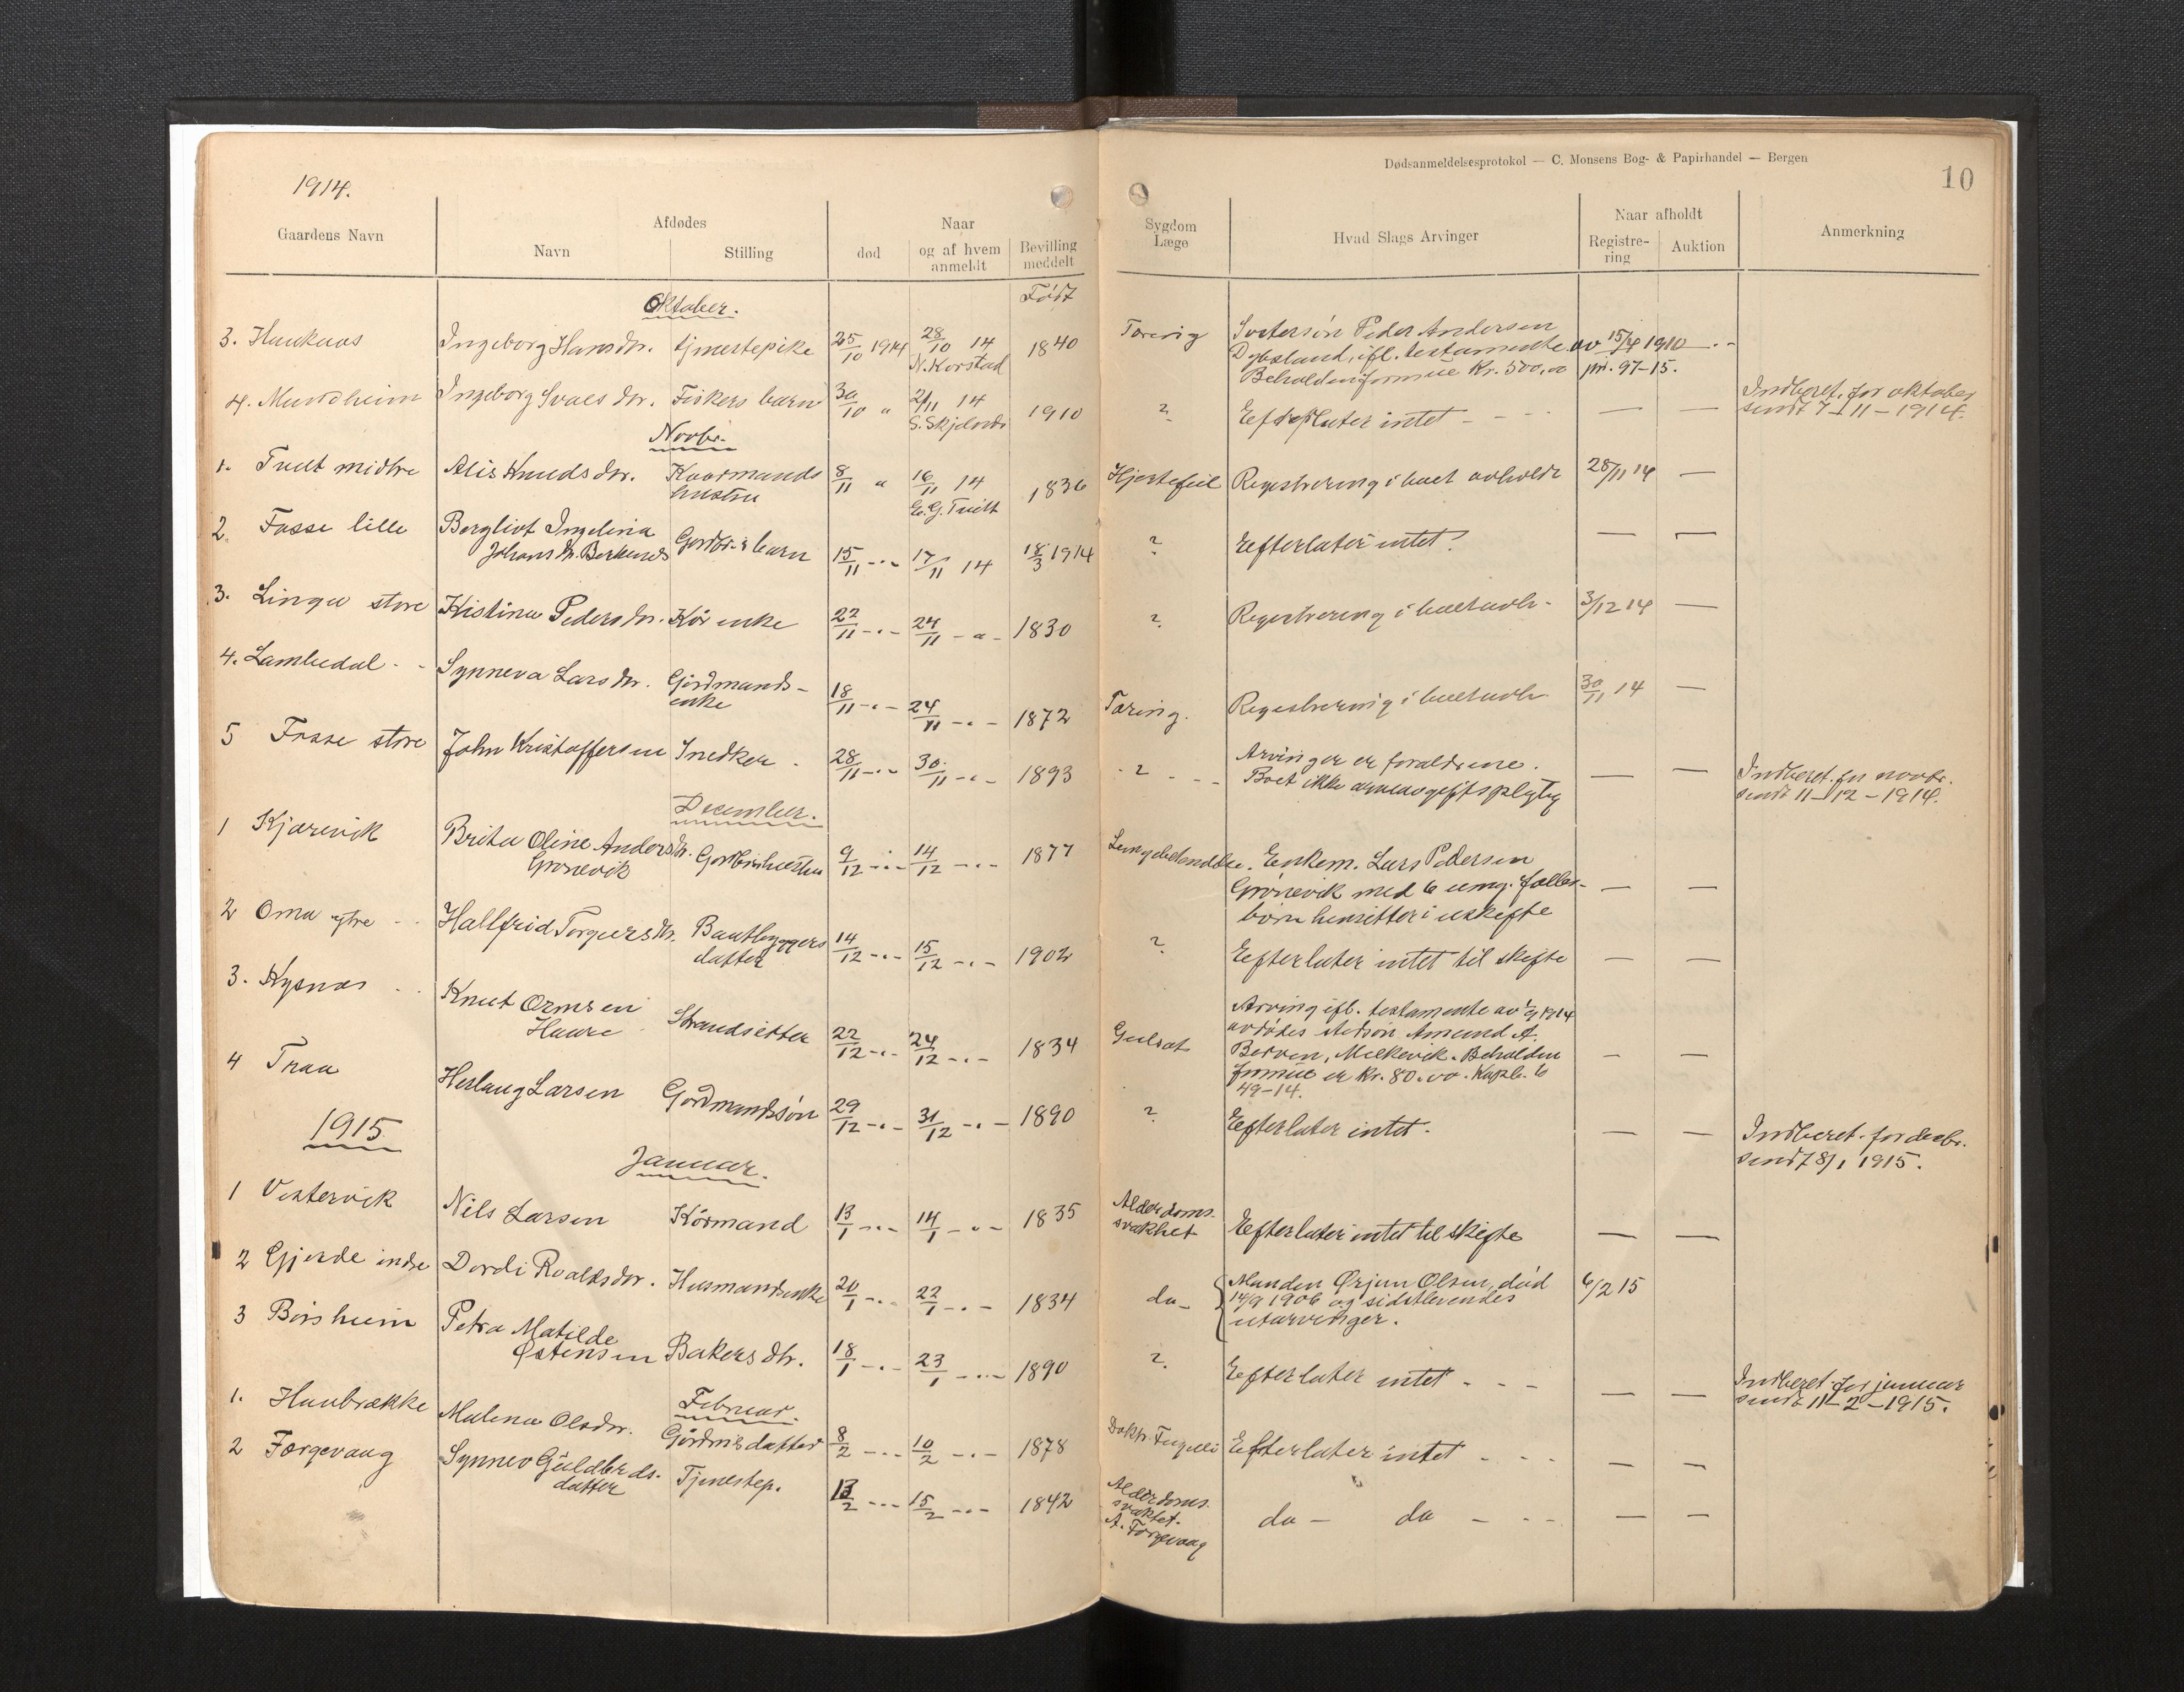 1914.
Dødsanmeldelsesprotokol — C. Monsens Bog- & Papirhandel — Bergen
10
Gaardens Navn
Afdødes
Navn
Stilling
Naar
død
og af hvem anmeldt
Bevilling meddelt
Sygdom Læge
Hvad Slags Arvinger
Naar afholdt
Registrering
Auktion
Anmerkning
Født
Oktober.
3. Haukaas Ingeborg Hansdtr. tjenestepike 25/10 1914 28/10 14 1840 Tæring Søstersøn Peder Andersen
N. Korstad Dybsland, ifl. testamente av 15/4 1910 — " —
Beholden formue Kr. 500,00 jnr. 97-15.
4. Mundheim Ingeborg Svaes dtr. Fiskers barn 30/10 " 2/11 14 1910 ? Efterlater intet — — — Indberet. for oktober
S. Skjelnes sendt 7-11-1914.
Novbr.
1. Tveit midtre Alis Knudsdtr. Kaarmands 8/11 " 16/11 14 1836 Hjertefeil Registrering i boet avholdt 28/11 14 —
hustru G. Tveit
2. Fosse lille Bergliot Ingelina
Johansdtr. Gardbr.s barn 15/11 - " - 17/11 14 18/3 1914 ? Efterlater intet. — —
3. Linga store Kistina Pedersdtr. Kår enke 22/11 - " - 24/11 - " - 1830 ? Registrering i boet avh. 3/12 14 —
4. Lambedal - - Synneva Larsdtr. Gårdmands-
enke 18/11 - " - 24/11 - " - 1872 Tæring. Registrering i boet avh. 30/11 14 —
5 Fosse store John Kristoffersen Snedker 28/11 - " - 30/11 - " - 1893 - ? - - Arvinger er forældrene.
Boet ikke arveavgiftspligtig — — Indberet. for novbr.
sendt 11-12-1914.
December.
1 Kjærevik Brita Oline Andersdtr. Gardbr.hustru 9/12 - " - 14/12 - " - 1877 Lungebetændelse. Enkem. Lars Pedersen
Grønevik Grønevik med 6 umg. fælles- — —
børn hensitter i uskifte
2 Oma ytre - - Hallfrid Torgersdtr. Baatbyggers
datter 14/12 - " - 15/12 - " - 1902 ? Efterlater intet til skifte — —
3. Kysnes - - Knut Ormsen
Haare Strandsitter 22/12 - " - 24/12 - " - 1834 Gulsot Arving ifl. testamente av 1/9 1914
avdødes Amund A.
Berven, Melkevik. Beholden — —
formue er kr. 80.00.
49-14.
4 Traa Herlaug Larsen Gårdmandssøn 29/12 - " - 31/12 - " - 1890 ? Efterlater intet. — — Indberet. for decbr.
sendt 8/1 1915.
1915
Januar.
1 Vestervik Nils Larsen Kårmand 13/1 - " - 14/1 - " - 1835 Alderdoms-
svakhet Efterlater intet til skifte — —
2 Gjerde indre Dordi Roaldsdtr. Husmandsenke 20/1 - " - 22/1 - " - 1834 do - Manden Ørjan Olsen, død 6/2 15
14/9 1906 og sidstlevendes
utarvinger.
3 Børsheim Petra Matilde
Østensen Bakers dtr. 18/1 - " - 23/1 - " - 1890 ? Efterlater intet - - - — — Indberet. for januar
sendt 11-2-1915.
Februar.
1. Haubrække Malena Olsdtr. Gårdm.s datter 8/2 - " - 10/2 - " - 1878 Doktr. Fugelli Efterlater intet - - - — —
2 Færgevaag Synnev Guldbrds.
datter Tjenestep. 13/2 - " - 15/2 - " - 1842 Alderdoms-
svakhet.
A. Færgevaag do — do — - - — —